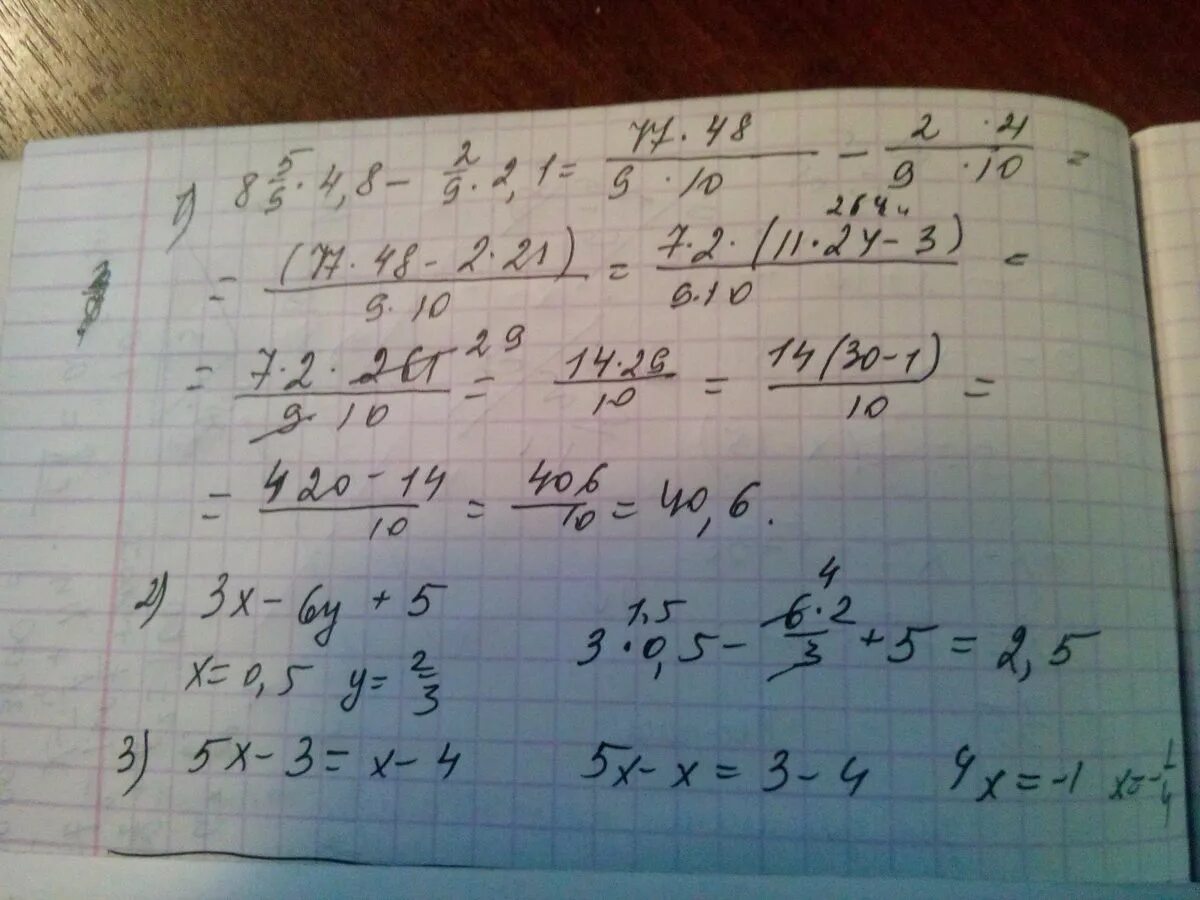 1) 8 5/9 · 4,8 - 2/9 · 2,1 = (77 · 48)/(9 · 10) - (2 · 21)/(9 · 10) =
= (77 · 48 - 2 · 21)/(9 · 10) = 7 · 2 · (11 · 24 - 3)/(9 · 10) =
264
= (7 · 2 · 261)/(9 · 10) 29 = (14 · 29)/10 = 14(30-1)/10 =
= (420 - 14)/10 = 406/10 = 40,6.
2) 3x - 6y + 5
x = 0,5 y = 2/3
1,5 4
3 · 0,5 - (6 · 2)/3 + 5 = 2,5
3) 5x - 3 = x - 4 5x - x = 3 - 4 4x = -1 x = -1/4